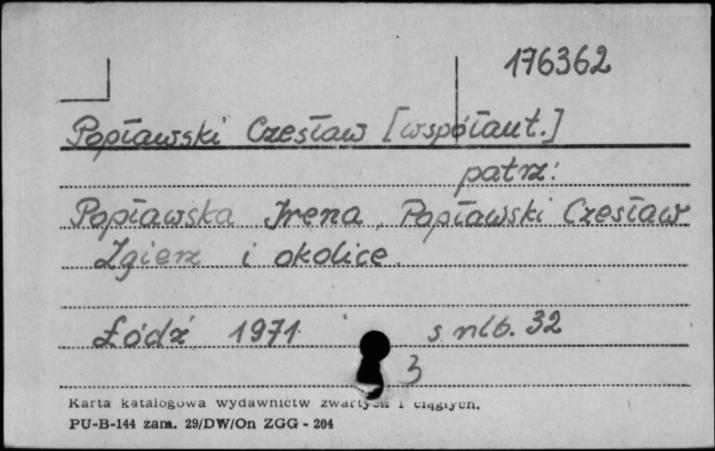 176362
Popławski Czesław [współaut.]
patrz:
Popławska Irena, Popławski Czesław
Zgierz i okolice.
Łódź 1971 s nlb. 32
3
Karta katalogowa wydawnictw zwartych i ciągłych.
PU-B-144 zam. 29/DW/On ZGG - 204